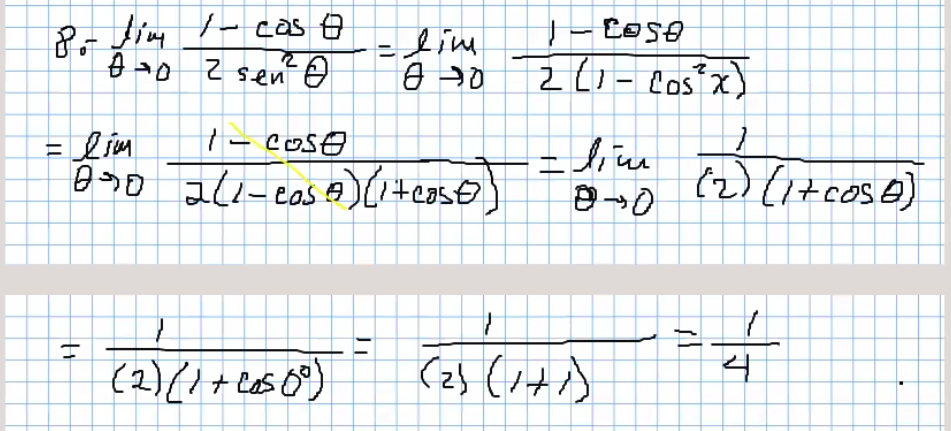 8.- lim θ→0 (1 - cos θ)/(2 sen² θ) = lim θ→0 (1 - cosθ)/(2(1 - cos²x))
= lim θ→0 (1 - cosθ)/(2(1 - cosθ)(1 + cosθ)) = lim θ→0 1/((2)(1 + cosθ))
= 1/((2)(1 + cos 0°)) = 1/((2)(1 + 1)) = 1/4 .